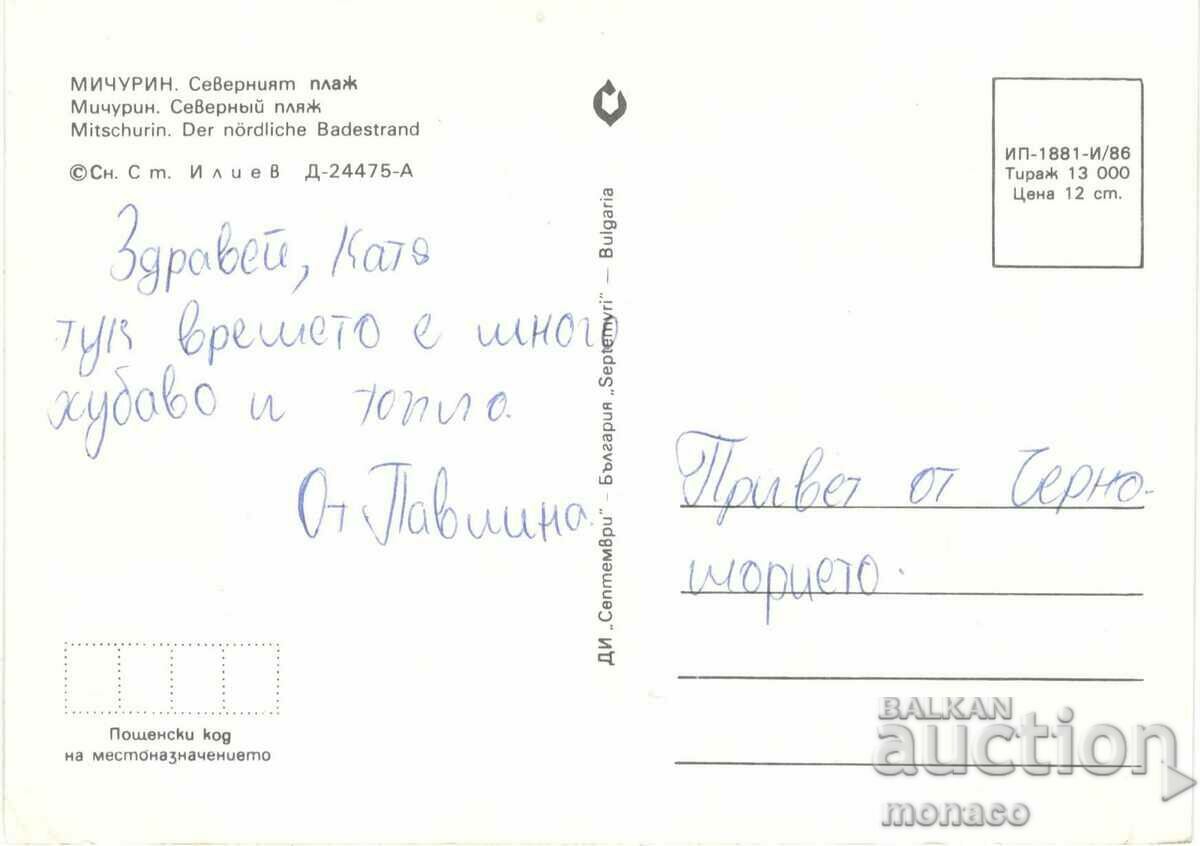 МИЧУРИН. Северният плаж
Мичурин. Северный пляж
Mitschurin. Der nördliche Badestrand
©Сн. Ст. Илиев Д-24475-А
Здравей, Катя
тук времето е много
хубаво и топло.
От Павлина.
Пощенски код
на местоназначението
ДИ „Септември" – България „Septemvri" – Bulgaria
ИП-1881-И/86
Тираж 13 000
Цена 12 ст.
Привет от Черно-
морието.
BALKAN
auction
monaco